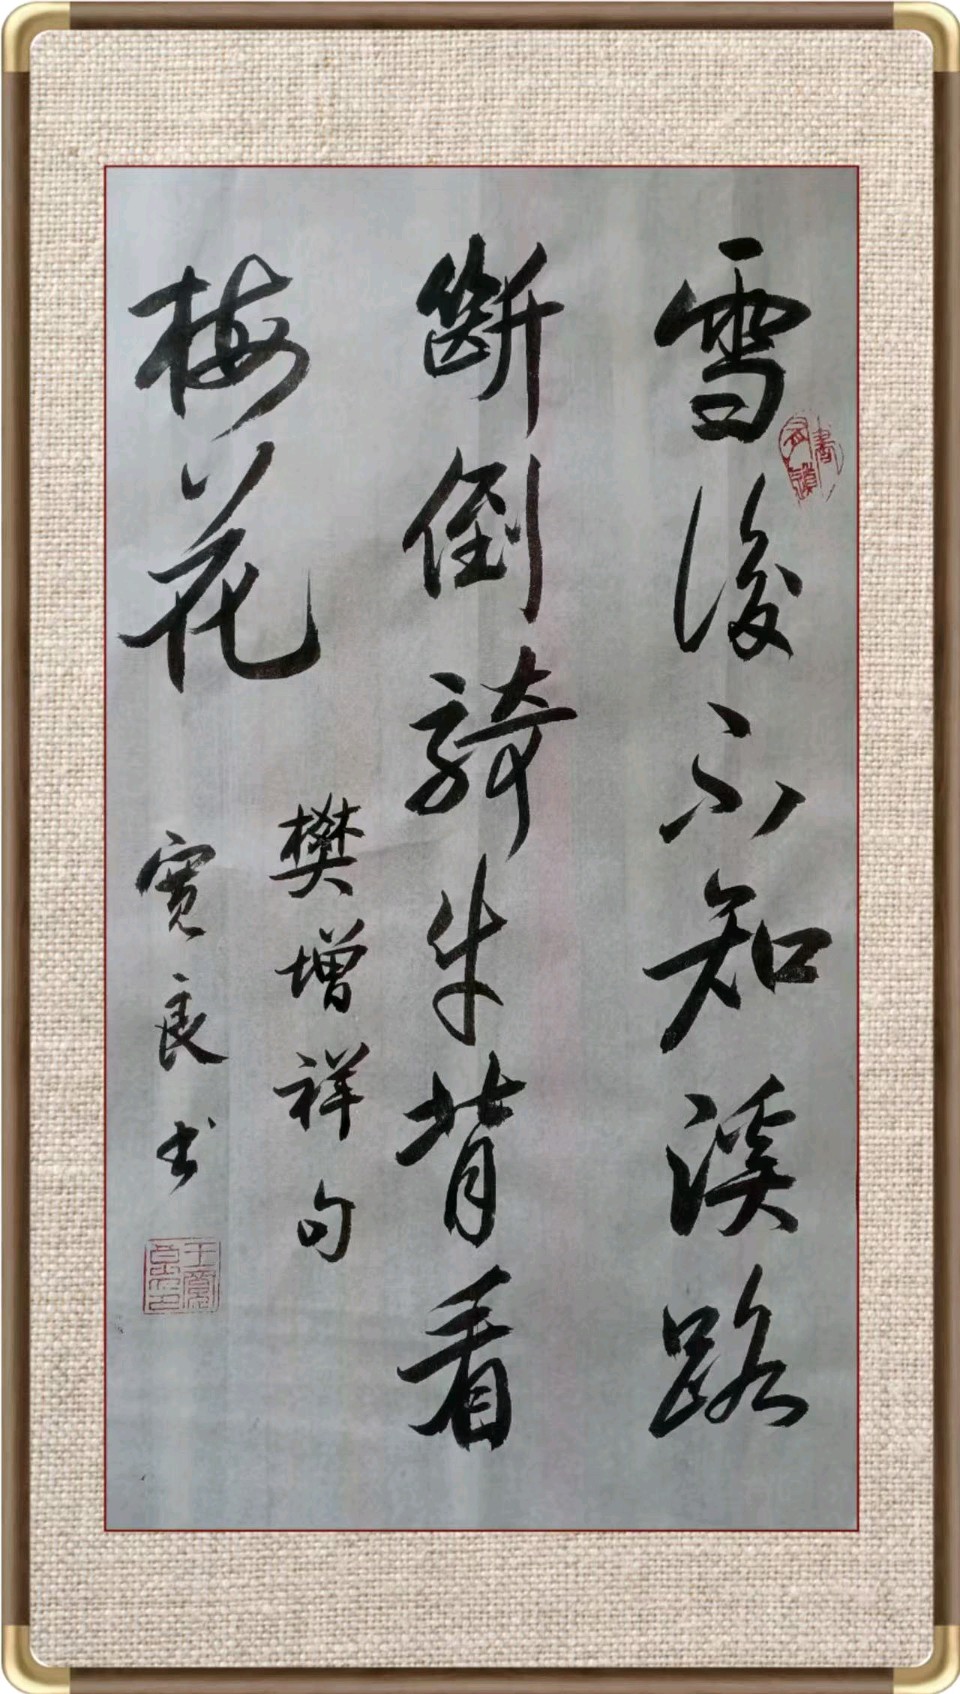 雪後不知溪路
斷倒騎牛背看
梅花
樊增祥句
寬良书
王寬良印